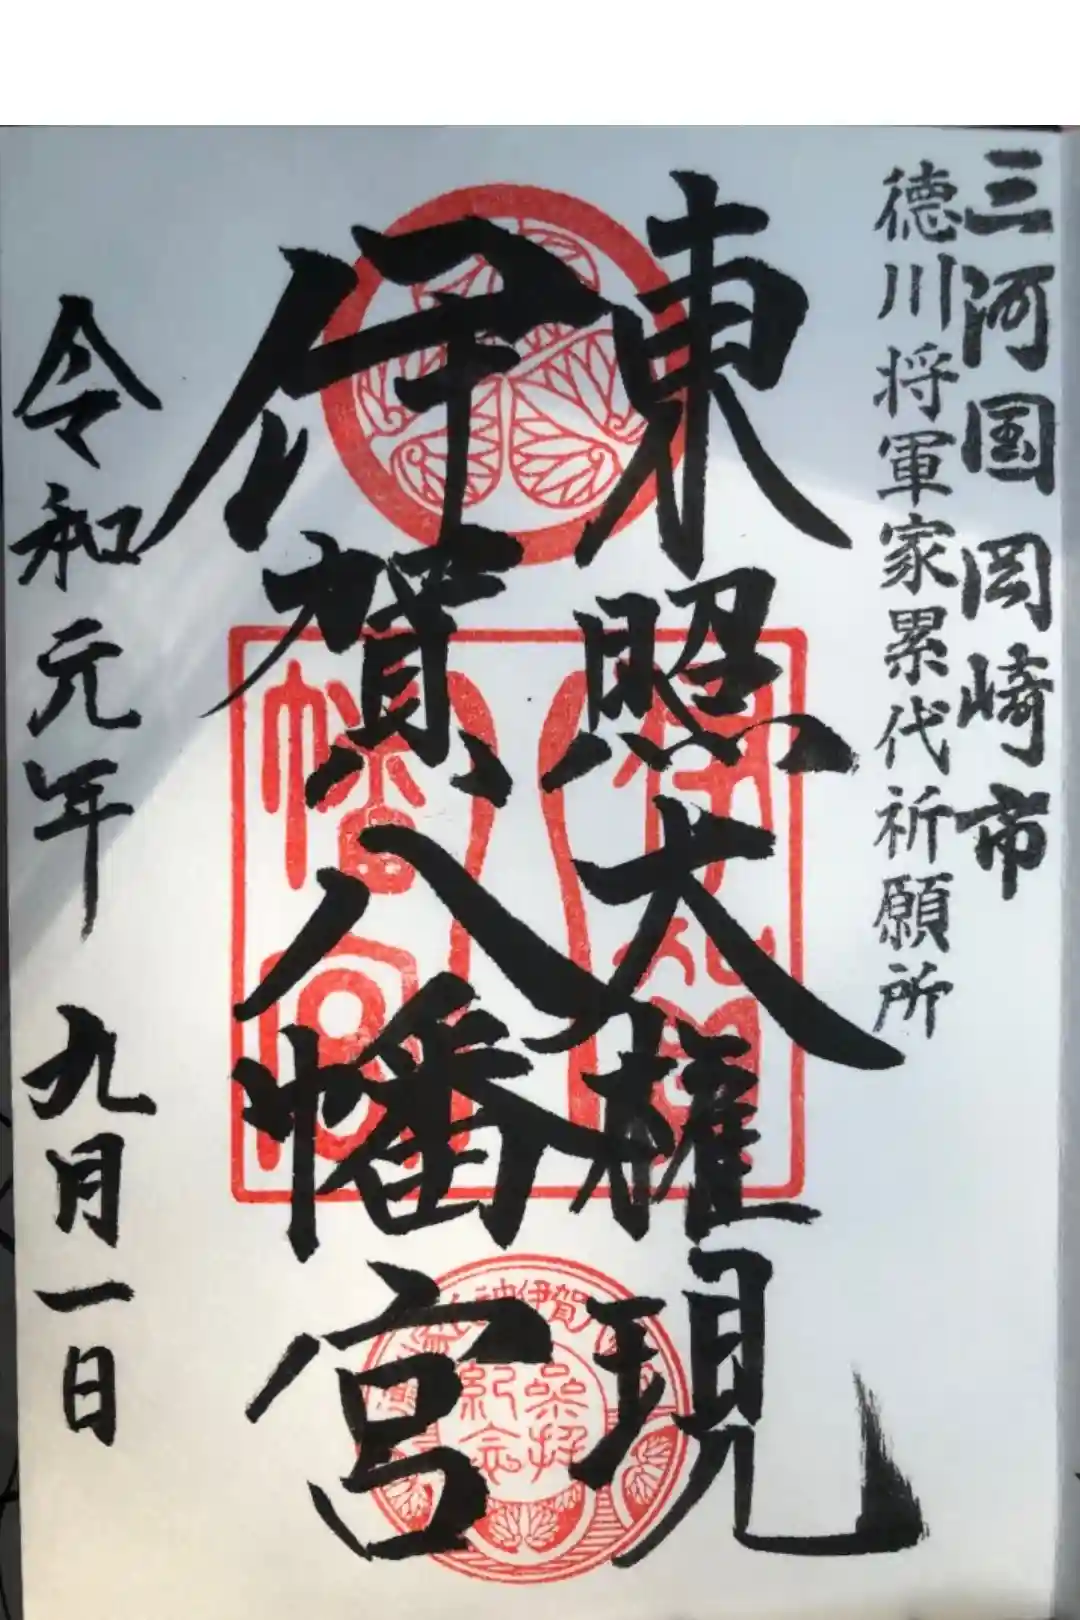 三河国 岡崎市
徳川将軍家累代祈願所
東照大権現
伊賀八幡宮
令和元年 九月一日
伊賀
八
幡宮
参拝
紀念